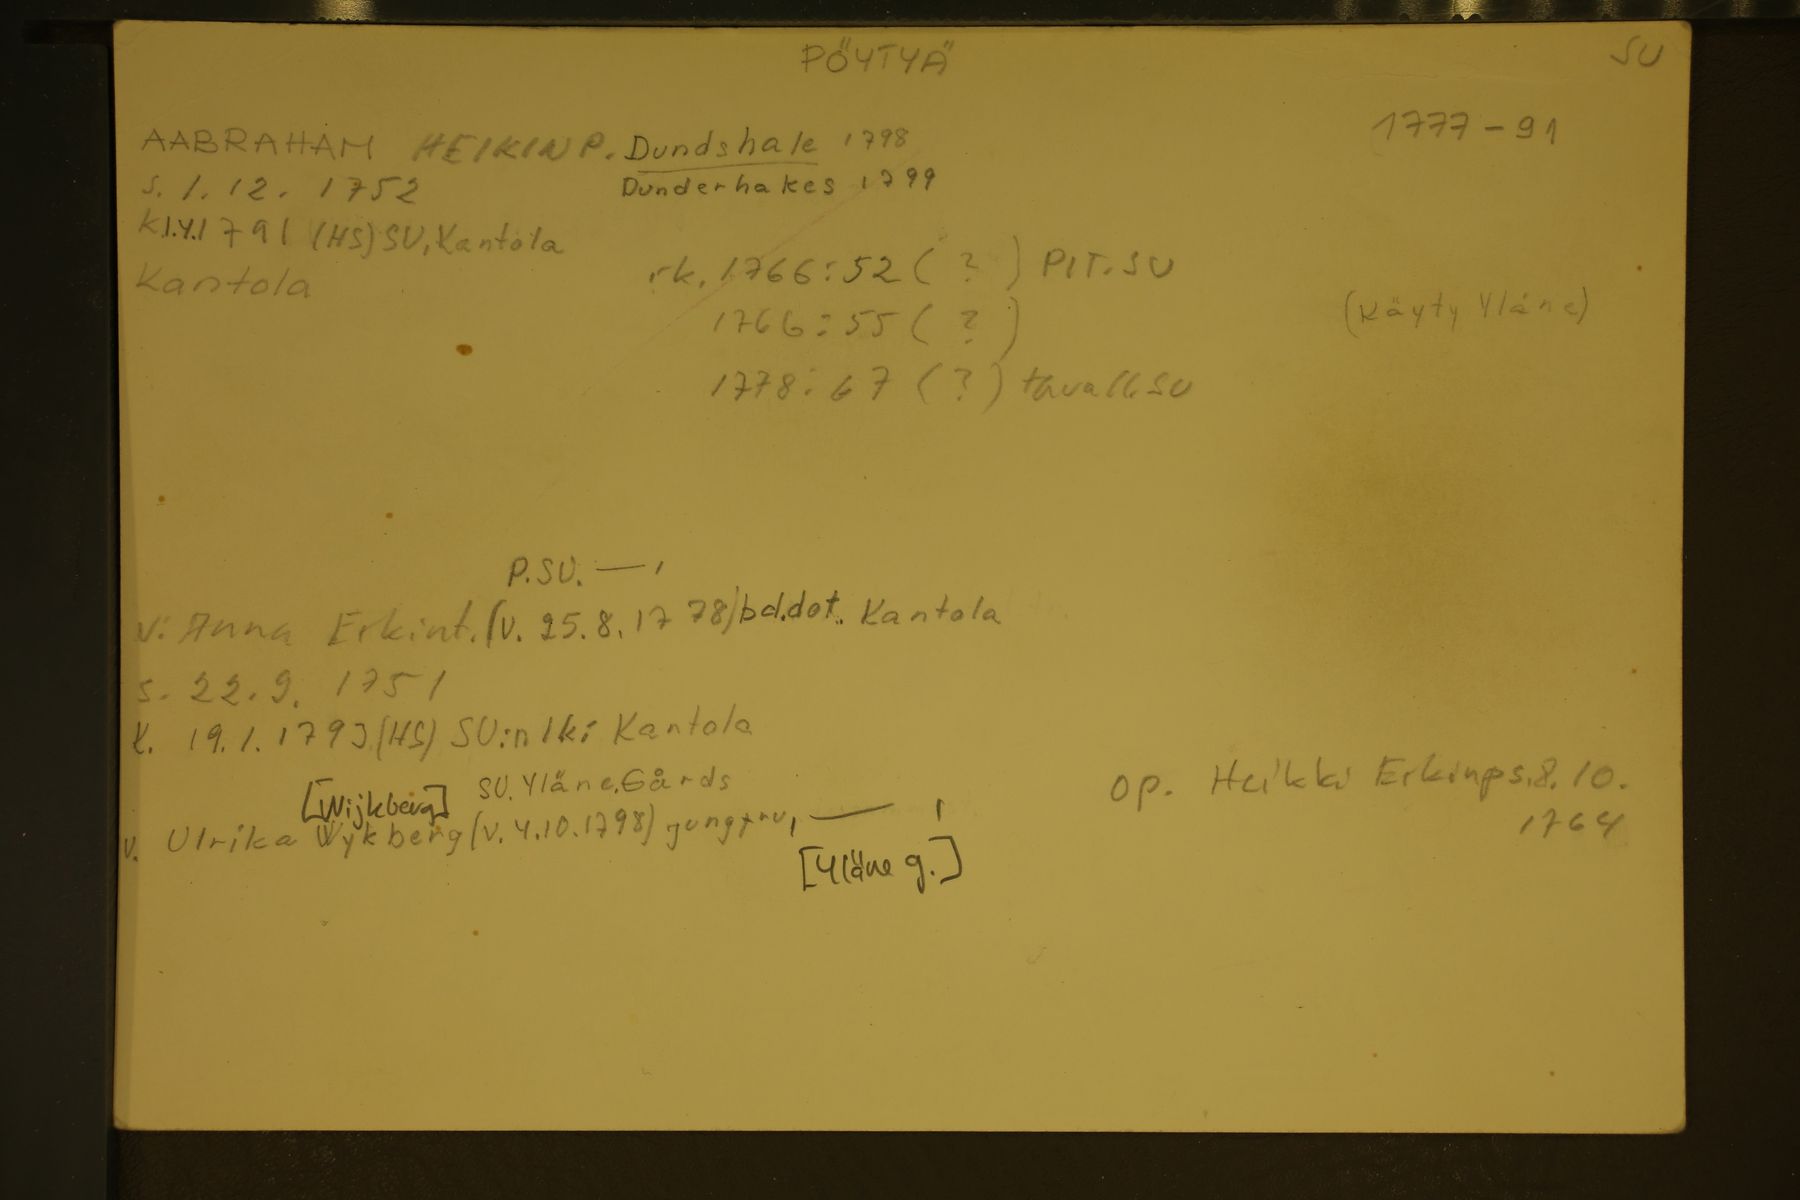 PÖYTYÄ SU
1777-91
AABRAHAM HEIKINP. Dundshale 1798
s. 1.12. 1752 Dunderhakes 1799
k.1.4.1791 (HS) SU, Kantola
Kantola
rk. 1766:52 ( ? ) PIT. SU
1766:55 ( ? )
(Käyty Yläne)
1778:67 (?) SU
P.SU. — ,
v: Anna Erkint. (v. 25.8.1778) bd.dot. Kantola
s. 22.9. 1751
k. 19.1.1793 (HS) SU:n lki Kantola
[Wijkberg] SU. Yläne. Gårds
v. Ulrika Wykberg (v. 4.10.1798) jungfru, — ,
[Yläne g.]
op. Heikki Erkinp s. 8.10.
1764